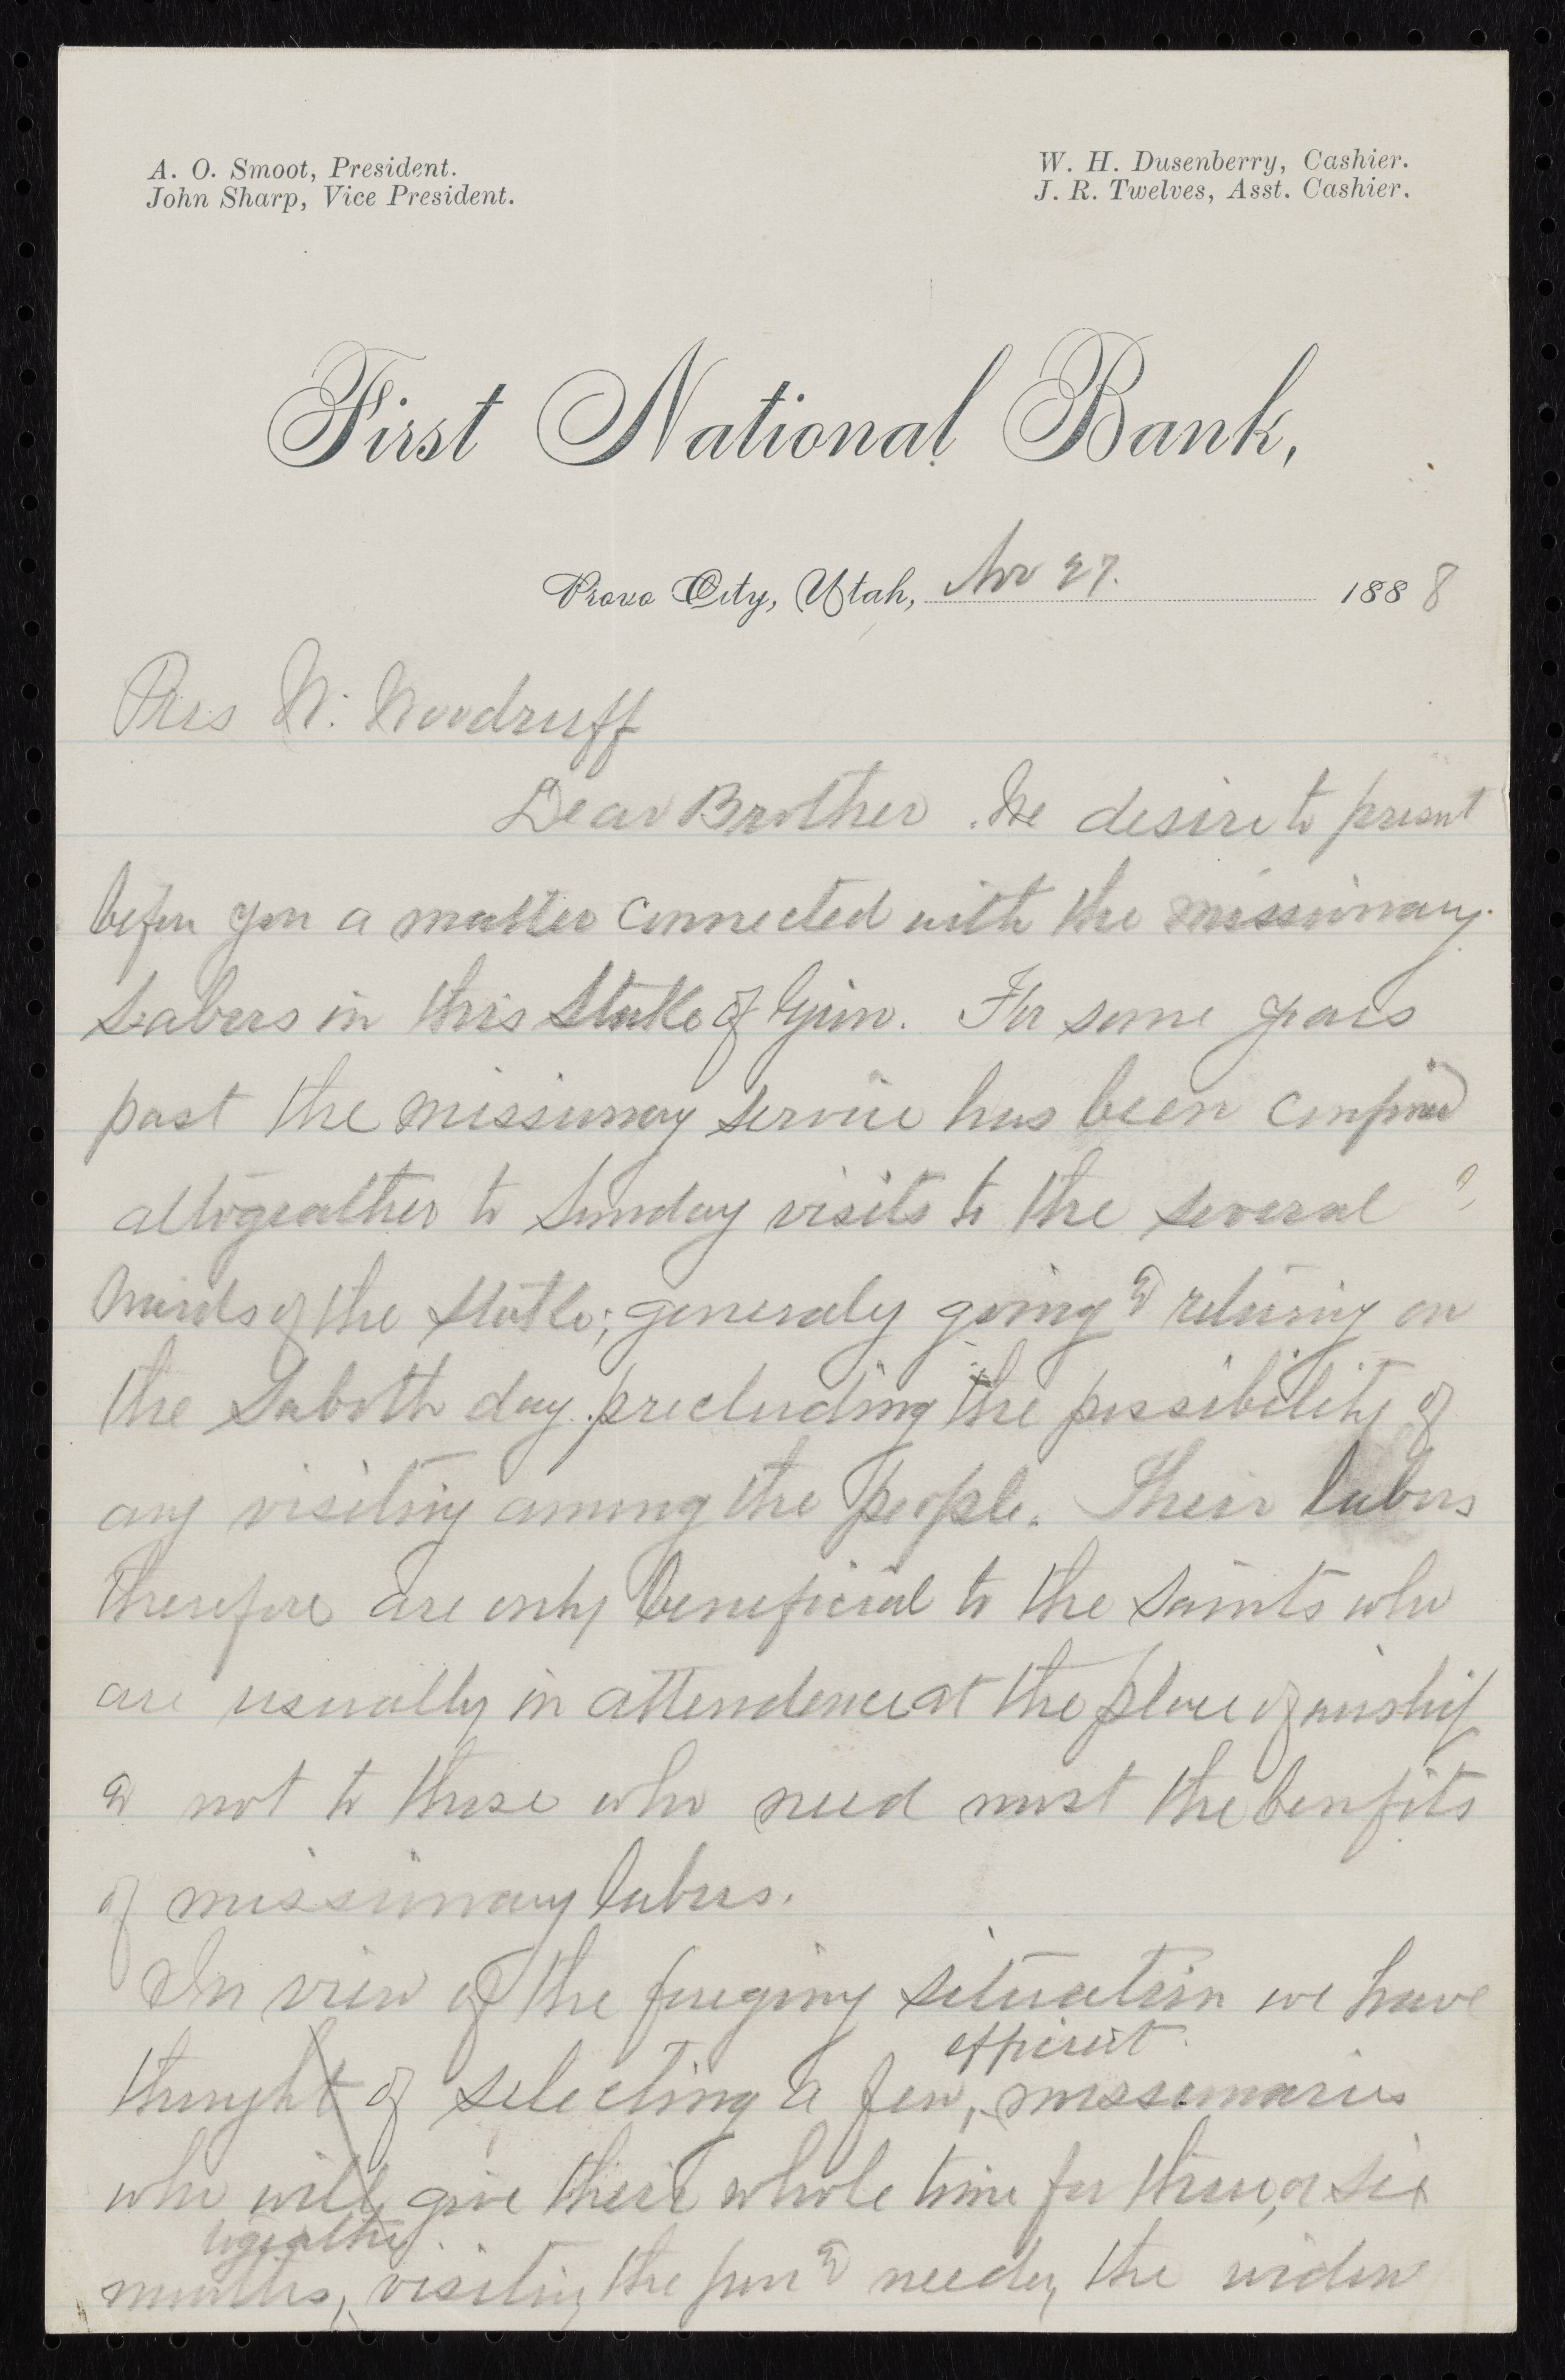 A. O. Smoot, President.
John Sharp, Vice President.
W. H. Dusenberry, Cashier.
J. R. Twelves, Asst. Cashier.
First National Bank,
Provo City, Utah, Nov 27. 1888
Pres W. Woodruff
Dear Brother. We desire to present
before you a matter connected with the missionary
Labors in this Stake of Zion. For some years
past the missionary service has been confined
altogeather to Sunday visits to the several
Wards of the Stake; generaly going & returing on
the Saboth day precluding the possibility of
any visiting among the people. Their labors
therefore are only beneficial to the Saints who
are usually in attendence at the place of worship
& not to those who need most the benfits
of missionary labors.
In view of the foregoing situation we have
thought of selecting a few, efficient missionaries
who will give their whole time for three, or six
months, togeather visiting the poor & needy, the widow